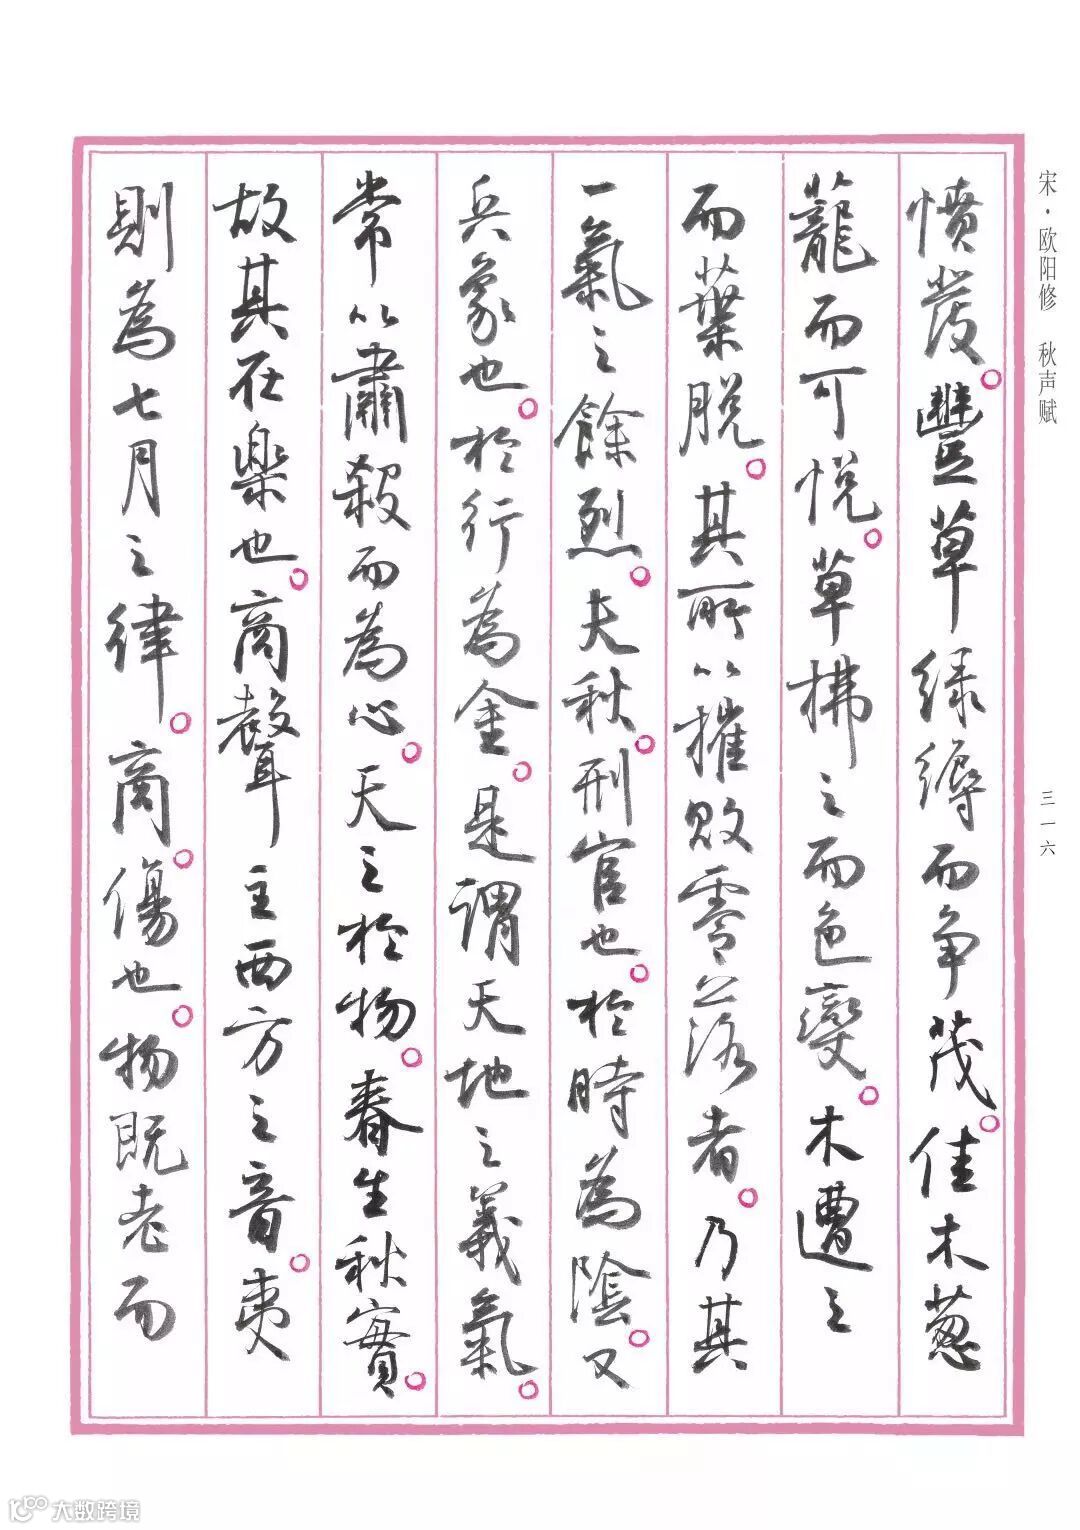 宋·欧阳修 秋声赋
三一六
憤發。豐草緑縟而争茂。佳木葱
蘢而可悦。草拂之而色變。木遭之
而葉脱。其所以摧敗零落者。乃其
一氣之餘烈。夫秋。刑官也。於時為陰。又
兵象也。於行為金。是謂天地之義氣。
常以肅殺而為心。天之於物。春生秋實。
故其在樂也。商聲主西方之音。夷
則為七月之律。商。傷也。物既老而
大数跨境